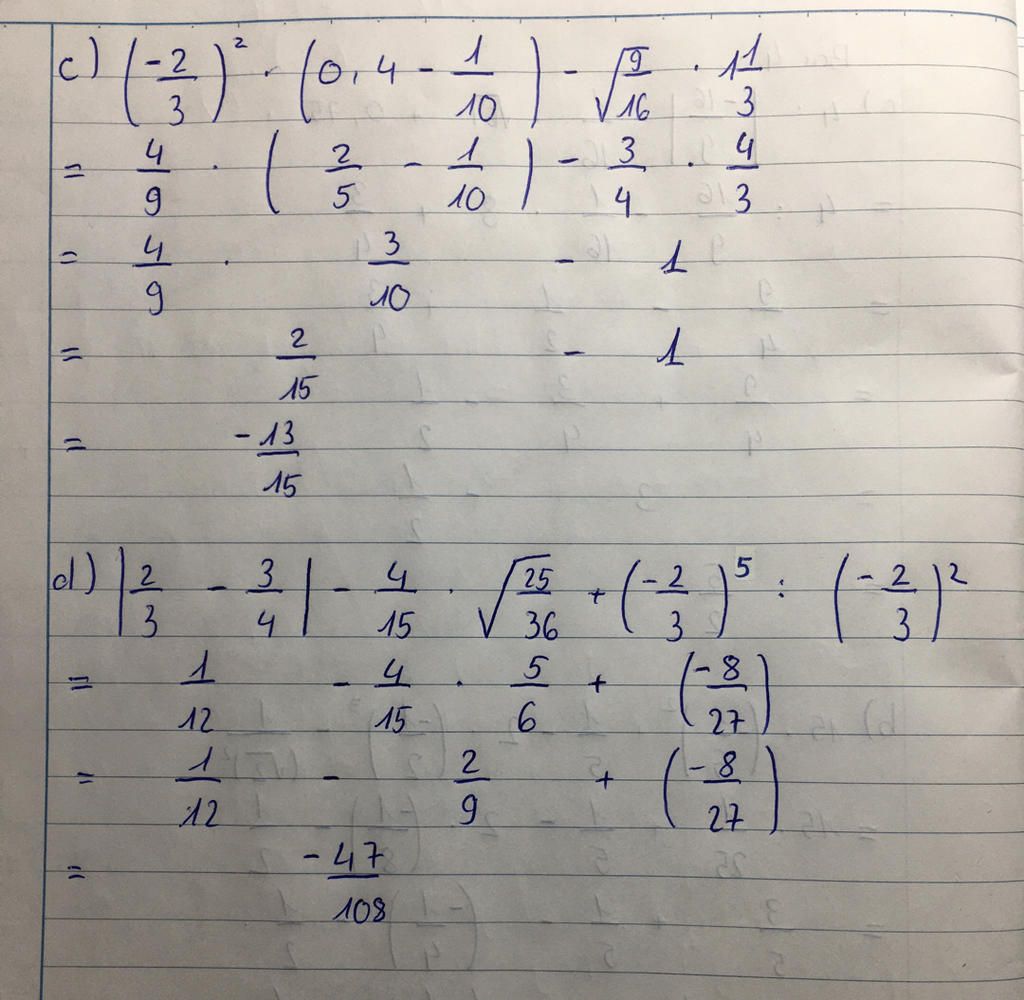 c) (-2/3)² · (0,4 - 1/10) - √9/16 · 1 1/3
= 4/9 · (2/5 - 1/10) - 3/4 · 4/3
= 4/9 · 3/10 - 1
= 2/15 - 1
= -13/15
d) |2/3 - 3/4| - 4/15 · √25/36 + (-2/3)⁵ : (-2/3)²
= 1/12 - 4/15 · 5/6 + (-8/27)
= 1/12 - 2/9 + (-8/27)
= -47/108